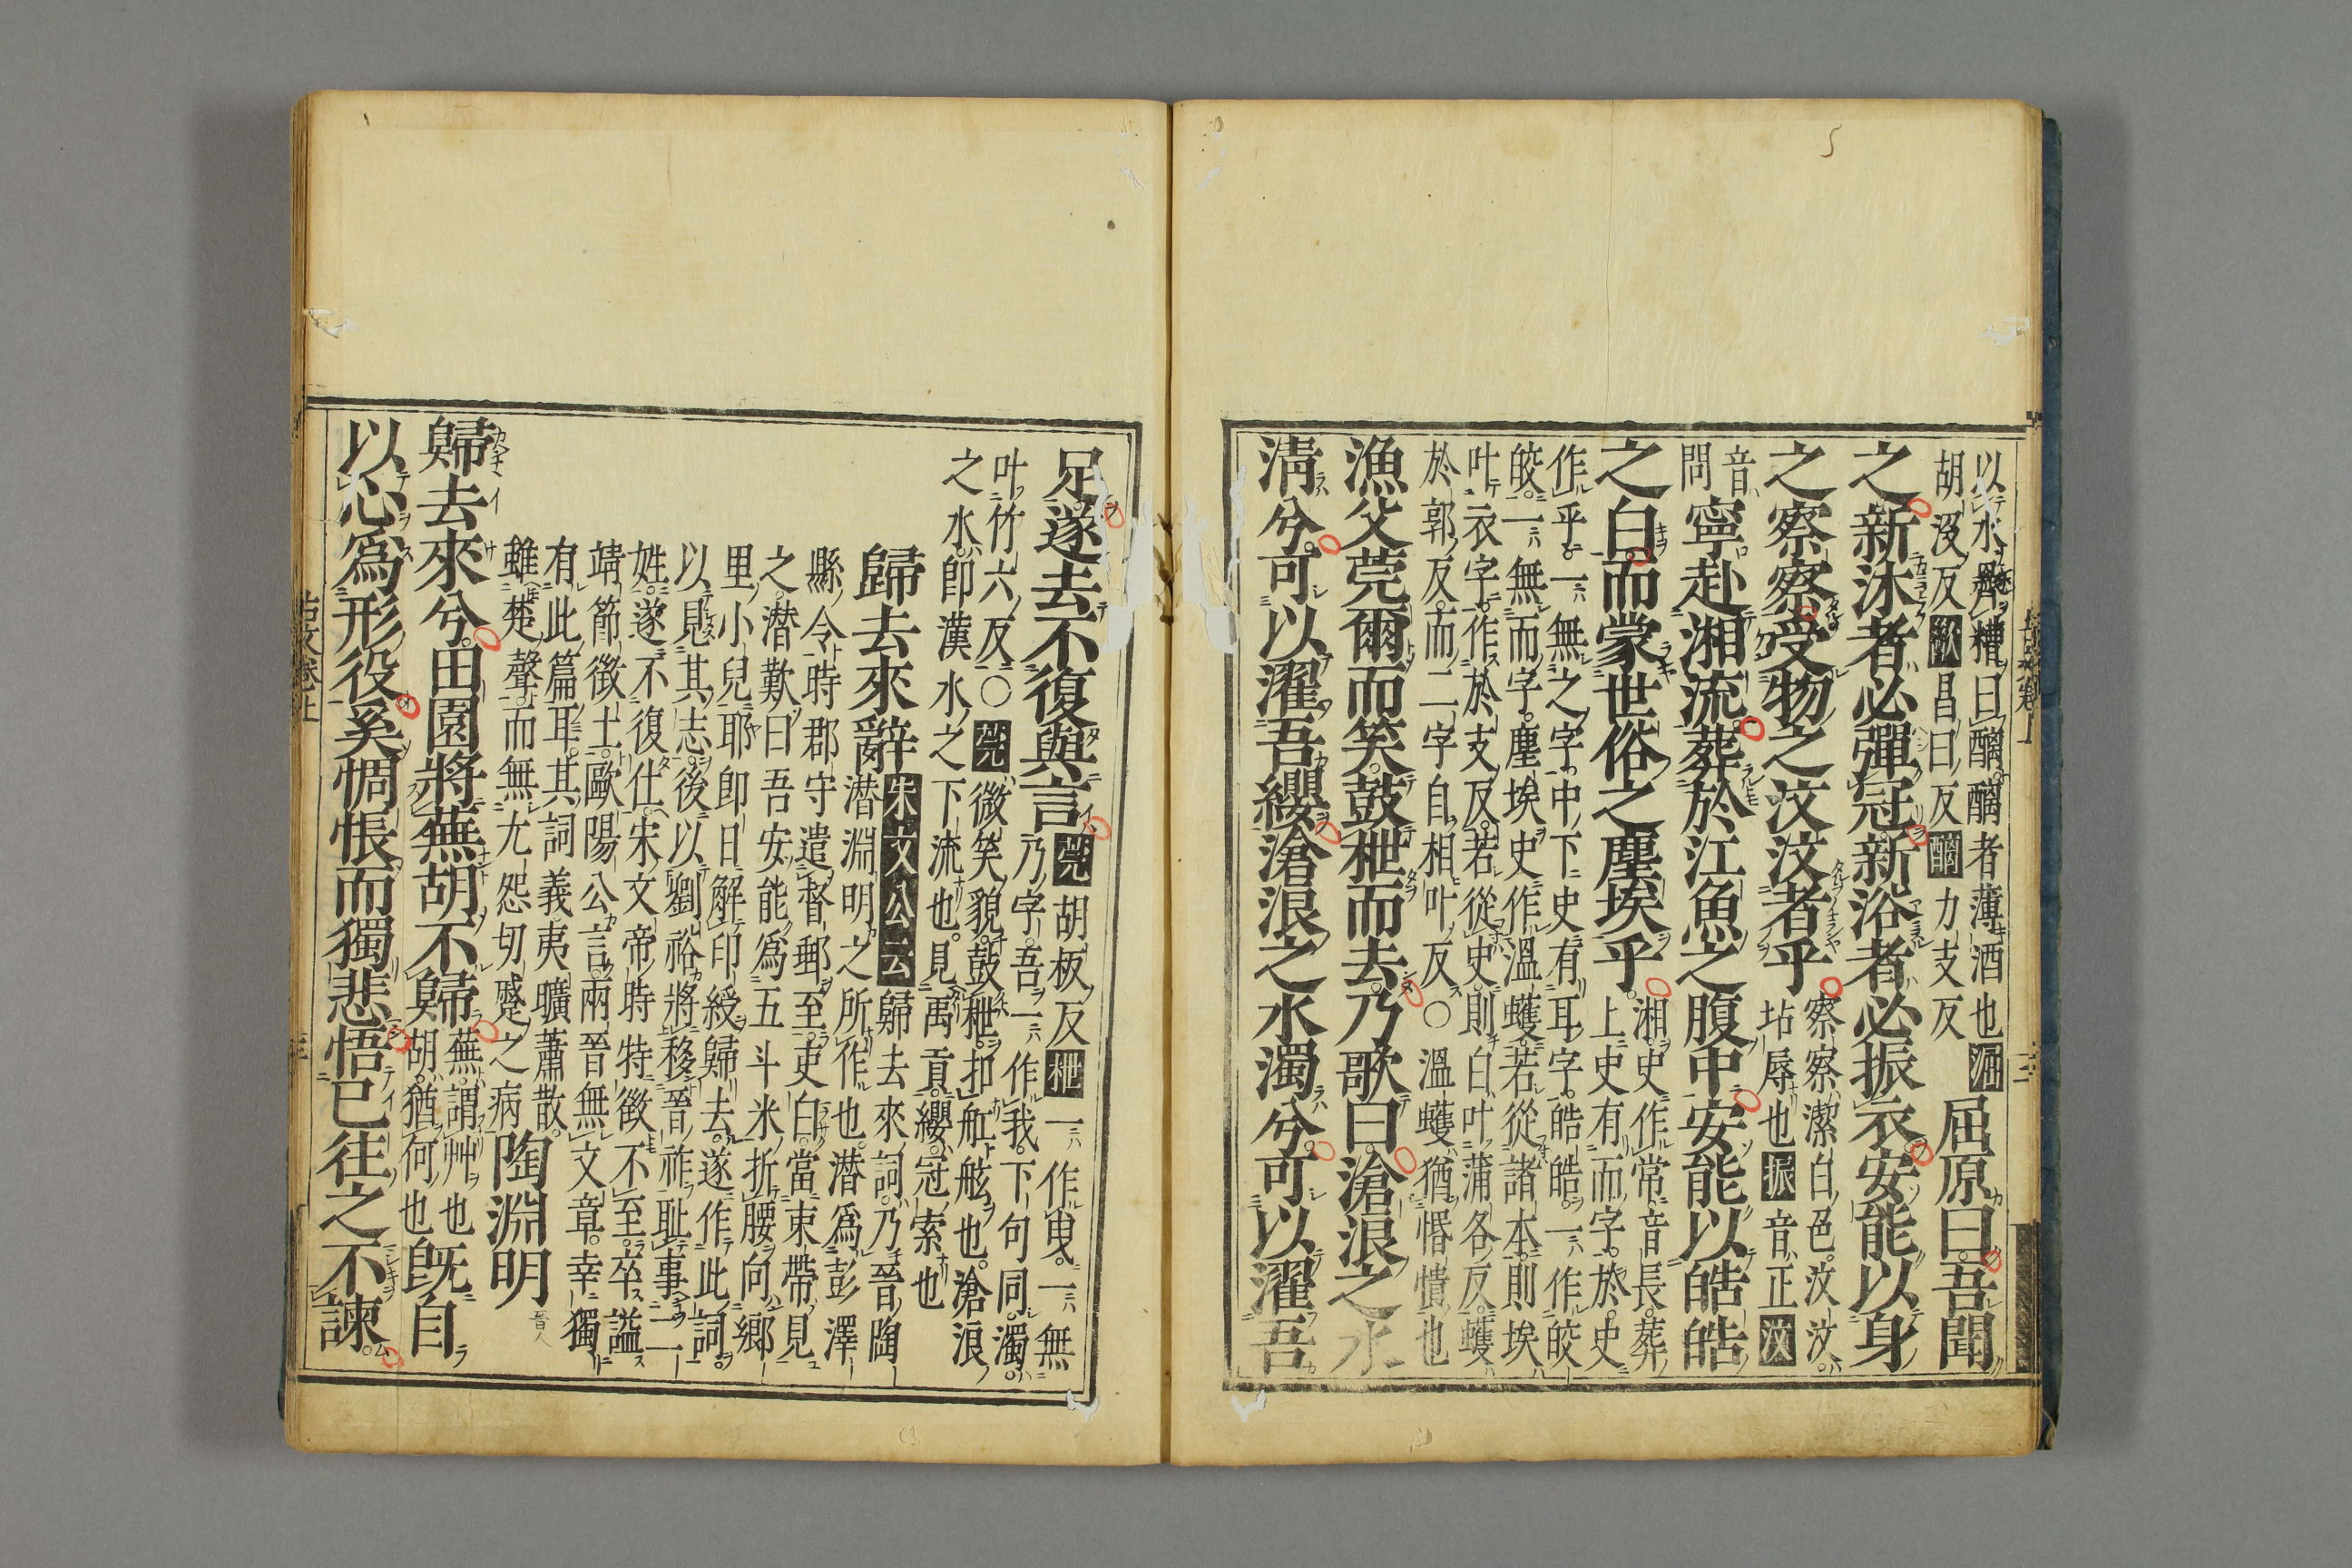 以水齊糟曰醨醨者薄酒也
胡沒反歠昌曰反醨力支反
屈原曰吾聞
之新沐者必彈冠新浴者必振衣安能以身
之察察受物之汶汶者乎
察察潔白色汶汶
坫辱也振音正汶
音
問
寧赴湘流葬於江魚之腹中安能以皓皓
之白而蒙世俗之塵埃乎
湘史作常音長葬
上史有而字於史
作乎一無之字中下史有耳字皓皓一作皎
皎一無而字塵埃史作溫蠖若從諸本則埃
叶衣字作於支反若從史則白叶蒲各反蠖
於郭反而二字自相叶反〇溫蠖猶惛憒也
漁父莞爾而笑鼓枻而去乃歌曰滄浪之水
清兮可以濯吾纓滄浪之水濁兮可以濯吾
足遂去不復與言
莞胡板反枻一作曳一無
乃字吾一作我下句同濁
叶竹六反〇莞微笑貌鼓枻扣舡舷也滄浪
之水即漢水之下流也見禹貢纓冠索也
歸去來辭
朱文公云歸去來詞乃晉陶
潜淵明之所作也潜爲彭澤
縣令時郡守遣督郵至吏白當束帶見
之潜歎曰吾安能爲五斗米折腰向鄉
里小兒耶即日解印綬歸去遂作此詞
以見其志後以劉裕將移晉祚耻事二
姓遂不復仕宋文帝時特徵不至卒謚
靖節徵士歐陽公言兩晉無文章幸獨
有此篇耳其詞義夷曠蕭散
雖楚聲而無尤怨切蹙之病
陶淵明
晉人
歸去來兮田園將蕪胡不歸
蕪謂艸也
胡猶何也
既自
以心爲形役奚惆悵而獨悲悟已往之不諫